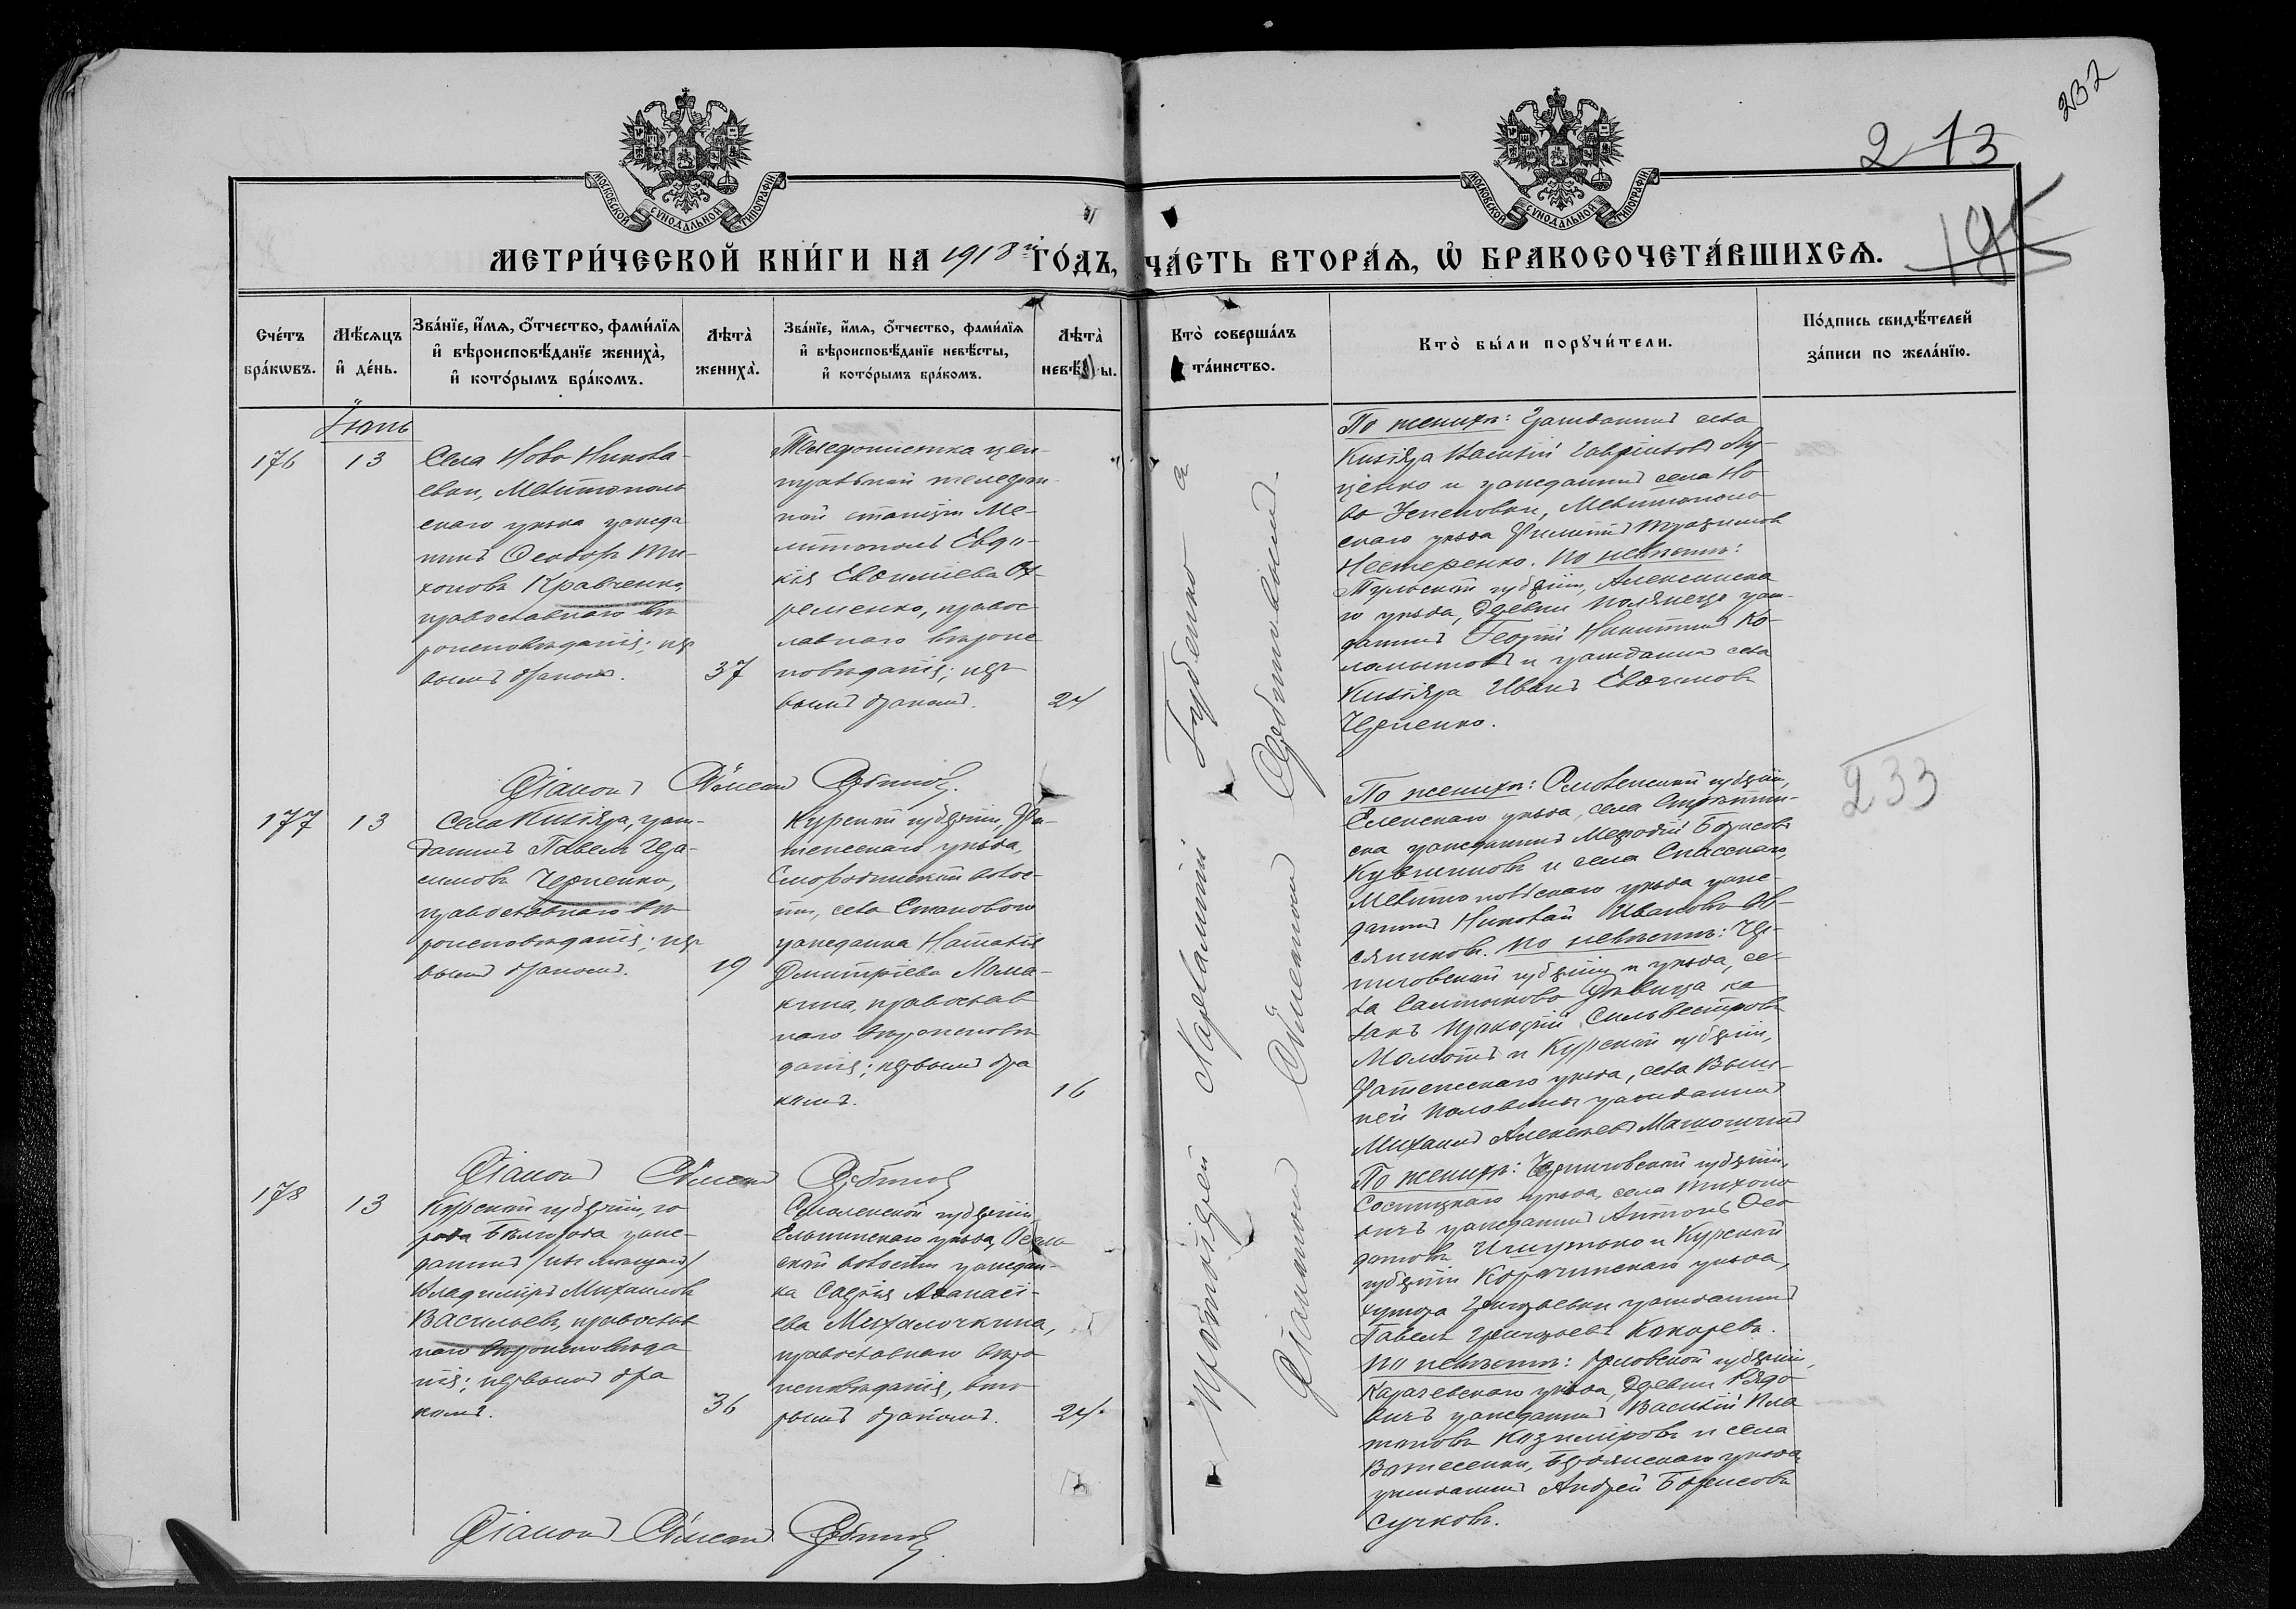 232
2 13
195
МОСКОВСКОЙ СѴНОДАЛЬНОЙ ТИПОГРАФІИ
МОСКОВСКОЙ СѴНОДАЛЬНОЙ ТИПОГРАФІИ
МЕТРИ́ЧЕСКОЙ КНИ́ГИ НА 1918й ГО́ДЪ, ЧА́СТЬ ВТОРА́Ѧ, Ѡ҆ БРАКОСОЧЕТА́ВШИХСѦ.
Сче́тъ бра́кѡвъ.
Мѣ́сѧцъ и҆ де́нь.
Зва́нїе, и҆́мѧ, ѻ҆́тчество, фами́лїѧ
и҆ вѣроисповѣ́данїе жениха̀,
и҆ кото́рымъ бра́комъ.
Лѣта̀ жениха̀.
Зва́нїе, и҆́мѧ, ѻ҆́тчество, фами́лїѧ
и҆ вѣроисповѣ́данїе невѣ́сты,
и҆ кото́рымъ бра́комъ.
Лѣта̀ невѣ́сты.
Кто̀ соверша́лъ та́инство.
Кто̀ бы́ли порꙋчи́тели.
По́дпись свидѣ́телей
за́писи по жела́нїю.
Іюнь
176
13
Села Ново Никола-
евки, Мелитополь
скаго уѣзда гражда
нинъ Ѳеодоръ Ти-
хоновъ Кравченко,
православнаго вѣ
роисповѣданія; пер
вымъ бракомъ.
37
Телефонистка цен-
тральной телефон-
ной станціи Ме-
литополь Евдо-
кія Евѳиміева Ох-
ременко, правос
лавнаго вѣроис
повѣданія; пер
вымъ бракомъ.
24
По женихѣ: Гражданинъ села
Кизіяра Василій Гавріиловъ Лу-
ценко и гражданинъ села Но
во Успеновки, Мелитополь
скаго уѣзда Филиппъ
Нестеренко. По невѣстѣ:
Тульской губерніи, Алексинска
го уѣзда, деревни граж-
данинъ Георгій Никитинъ Ко-
и гражданинъ села
Кизіяра Иванъ Евѳимовъ
Черненко.
Діаконъ Алексій
177
13
Села Кизіяра, граж-
данинъ Павелъ Гера-
симовъ Черненко,
православнаго вѣ
роисповѣданія; пер
вымъ бракомъ.
19
Курской губерніи, Фа-
тежскаго уѣзда,
Смородинской волос-
ти, села Станового
гражданка Наталія
Димитріева Лома-
кина, православ
наго вѣроисповѣ
данія; первымъ бра
комъ.
16
По женихѣ: Смоленской губерніи,
Еленскаго уѣзда, села
ска гражданинъ Меѳодій Борисовъ
и села Спасскаго,
Мелитопольскаго уѣзда граж-
данинъ Николай Ивановъ Ов-
сяниковъ. По невѣстѣ: Чер-
ниговской губерніи и уѣзда, се-
ла Салтыково Дѣвица ка
закъ Прокофій Сильвестровъ
и Курской губерніи,
Фатежскаго уѣзда, села
гражданинъ
Михаилъ Алексѣевъ
233
Діаконъ Алексій
178
13
Курской губерніи, го
рода Бѣлгорода граж-
данинъ /изъ мѣщанъ/
Владиміръ Михаиловъ
Васильевъ, православ
наго вѣроисповѣда
нія; первымъ бра
комъ.
36
Смоленской губерніи,
Ельнинскаго уѣзда,
ской волости граждан-
ка Софія Аѳанасі-
ева Михалочкина,
православнаго вѣро
исповѣданія, вто
рымъ бракомъ.
24.
По женихѣ: Черниговской губерніи,
Сосницкаго уѣзда, села Тихоно
вичъ гражданинъ Антонъ Ѳео
и Курской
губерніи Корочинскаго уѣзда,
хутора Григорьевки гражданинъ
Павелъ Григорьевъ Кокоревъ.
По невѣстѣ: Орловской губерніи,
Карачевскаго уѣзда, деревни Рядо
вичъ гражданинъ Василій Пла
тоновъ Казиміровъ и села
Вознесенки, Бердянскаго уѣзда
гражданинъ Андрей Борисовъ
Сучковъ.
Діаконъ Алексій
Протоіерей Харлампій Губенко
Діаконъ Алексій